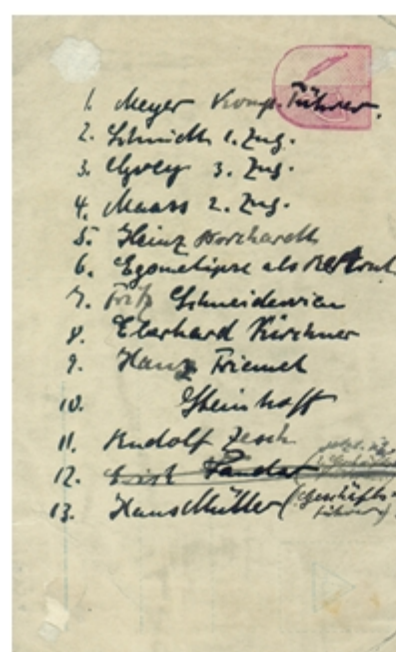 1. Meyer Komp. Führer.
2. Schmidt 1. Zug.
3. 3. Zug.
4. Maass 2. Zug.
5. Heinz Borchardt
6. Egometipse als
7. Fritz Schneidewien
8. Eberhard Kirchner
9. Hans Friemel
10. Steinhoff
11. Rudolf Jesch
12.
13. Hans Müller (Geschäfts-
führer)